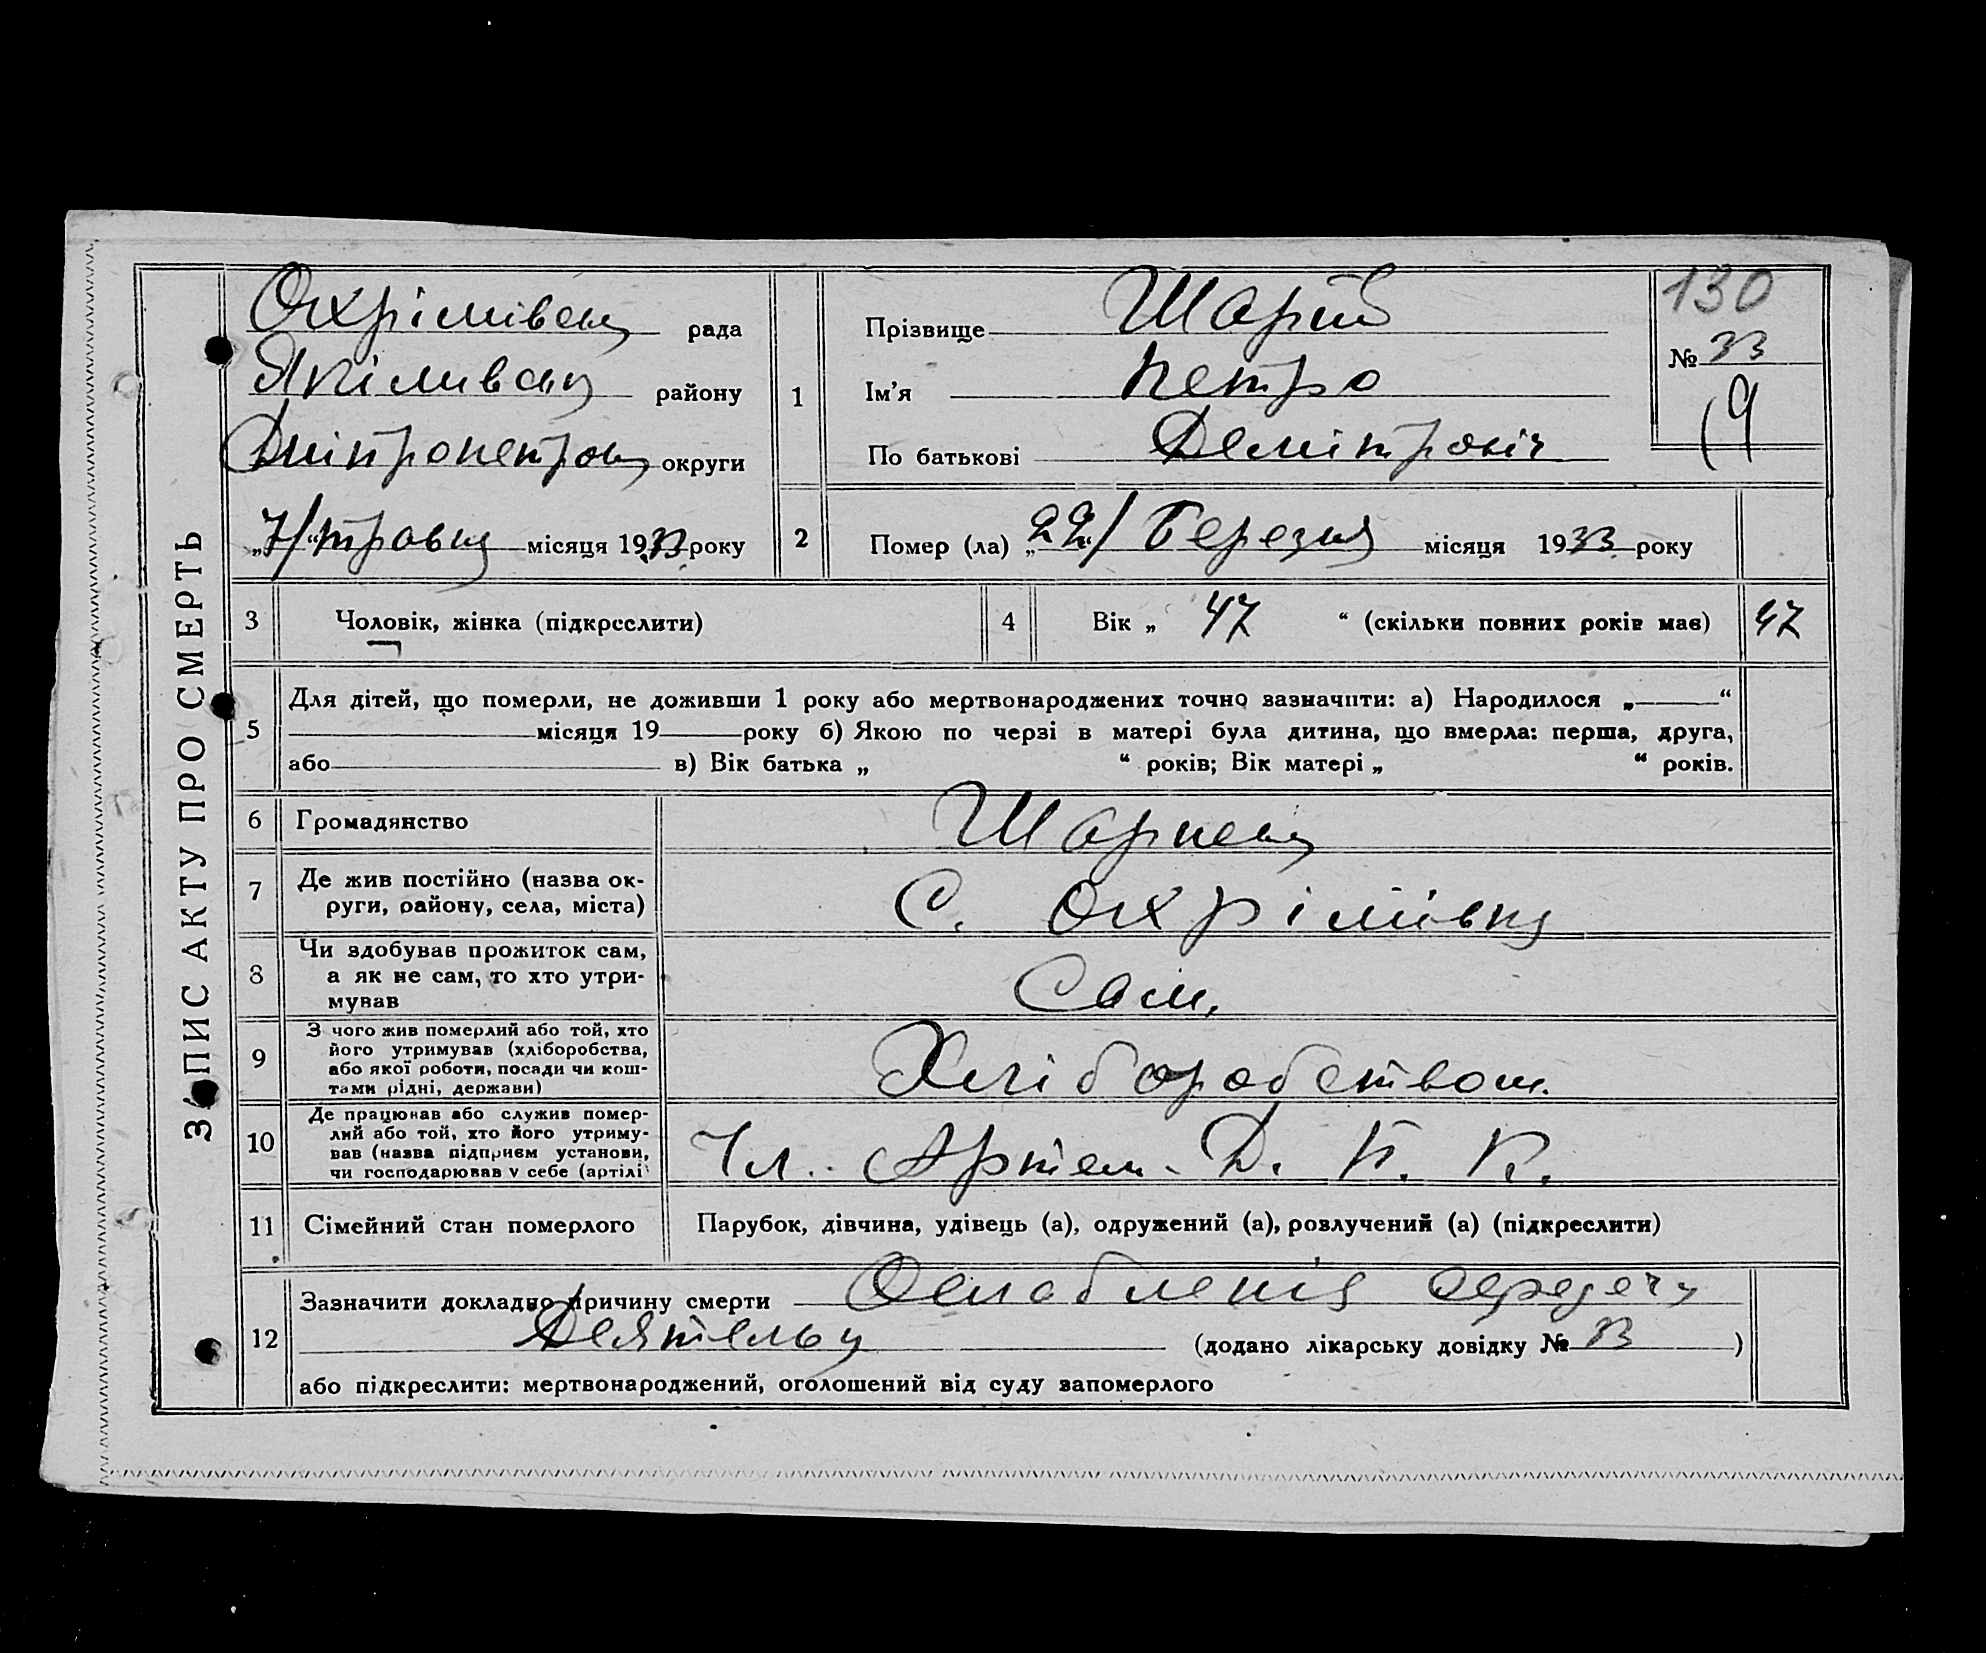 ЗАПИС АКТУ ПРО СМЕРТЬ
Охрімівськ рада
Якімівськ району
Дніпропетров округи
„7/“ травня місяця 1933 року
1
Прізвище Шарий
Ім’я Петро
По батькові Демітровіч
130
№ 33
19
2
Помер (ла) „22/“ Березня місяця 1933 року
3 Чоловік, жінка (підкреслити)
4 Вік „ 47 “ (скільки повних років має) 47
5 Для дітей, що померли, не доживши 1 року або мертвонароджених точно зазначити: а) Народилося „ “
місяця 19 року б) Якою по черзі в матері була дитина, що вмерла: перша, друга,
або в) Вік батька „ “ років; Вік матері „ “ років.
6 Громадянство
7 Де жив постійно (назва ок-
руги, району, села, міста) С. Охрімівка
8 Чи здобував прожиток сам,
а як не сам, то хто утри-
мував Сам.
9 З чого жив померлий або той, хто
його утримував (хліборобства,
або якої роботи, посади чи кош-
тами рідні, держави) Хліборобством.
10 Де працював або служив помер-
лий або той, хто його утриму-
вав (назва підприєм установи,
чи господарював у себе (артілі) Чл. Артем. Д. П. К.
11 Сімейний стан померлого Парубок, дівчина, удівець (а), одружений (а), розлучений (а) (підкреслити)
12 Зазначити докладно причину смерти Ослабленія сердечн
Деятельн (додано лікарську довідку № 33 )
або підкреслити: мертвонароджений, оголошений від суду запомерлого